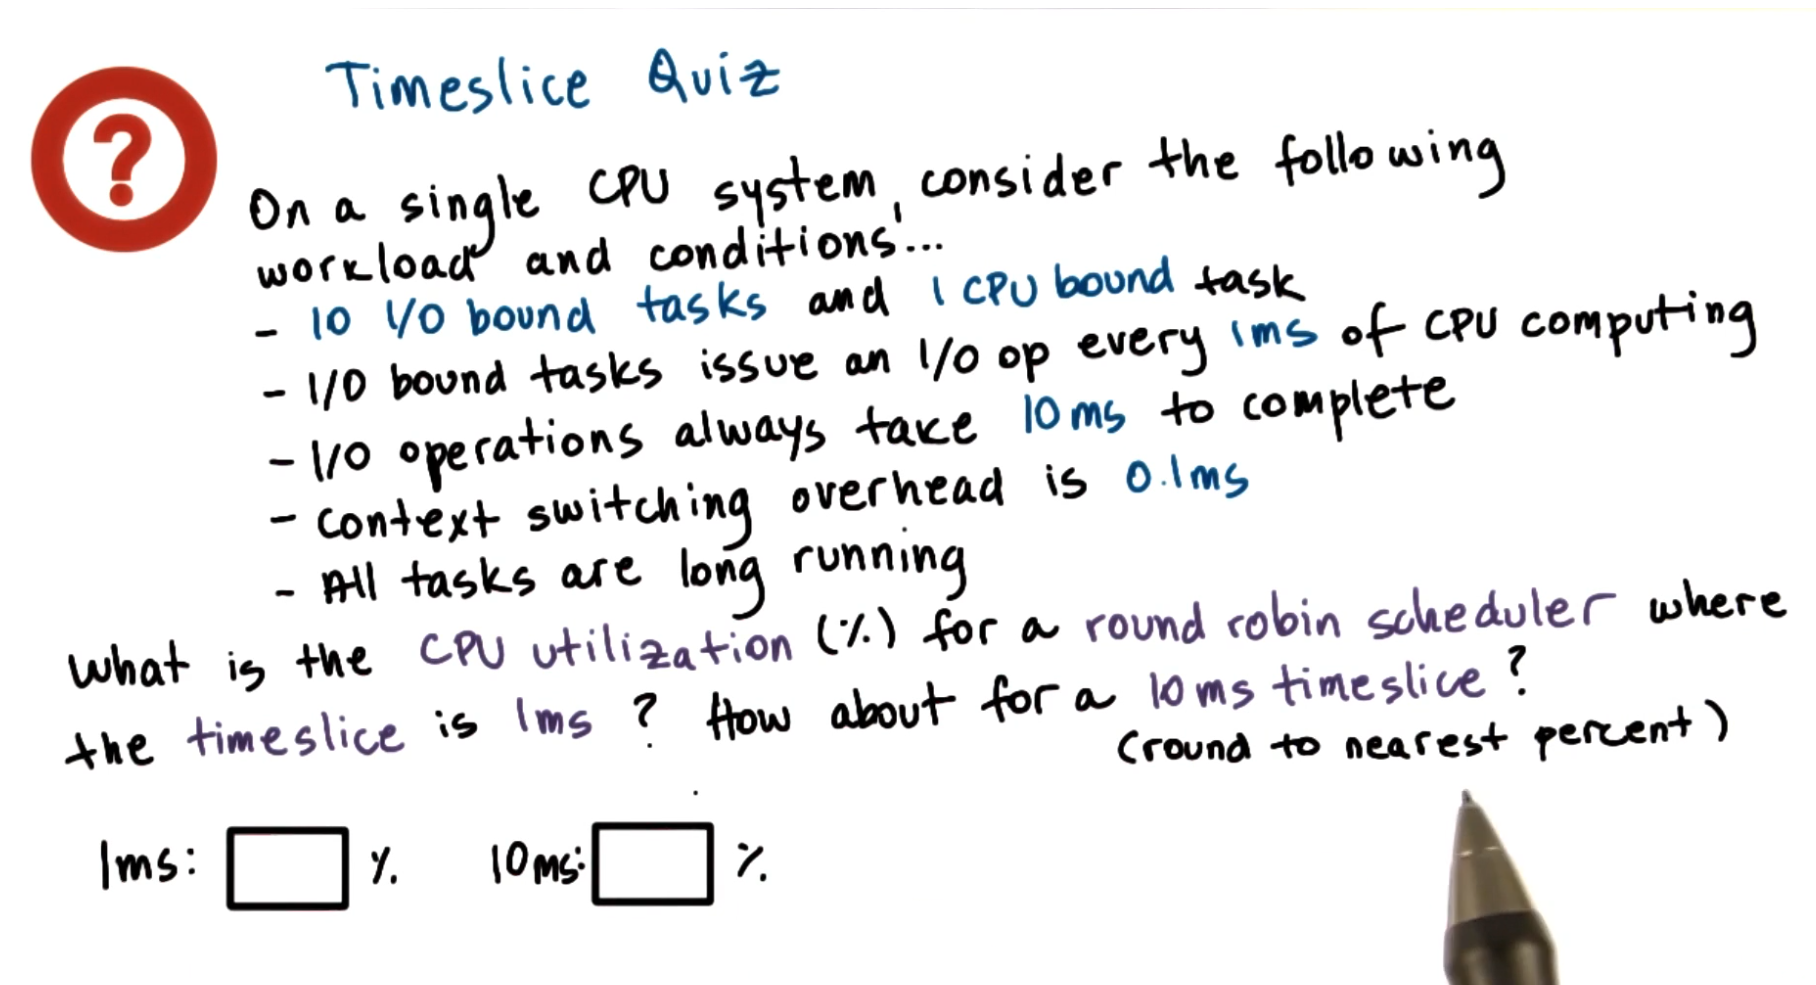 ?
Timeslice Quiz
On a single CPU system, consider the following
workload and conditions...
- 10 I/O bound tasks and 1 CPU bound task
- I/O bound tasks issue an I/O op every 1ms of CPU computing
- I/O operations always take 10ms to complete
- context switching overhead is 0.1ms
- All tasks are long running
What is the CPU utilization (%) for a round robin scheduler where
the timeslice is 1ms? How about for a 10ms timeslice?
(round to nearest percent)
1ms: % 10ms: %